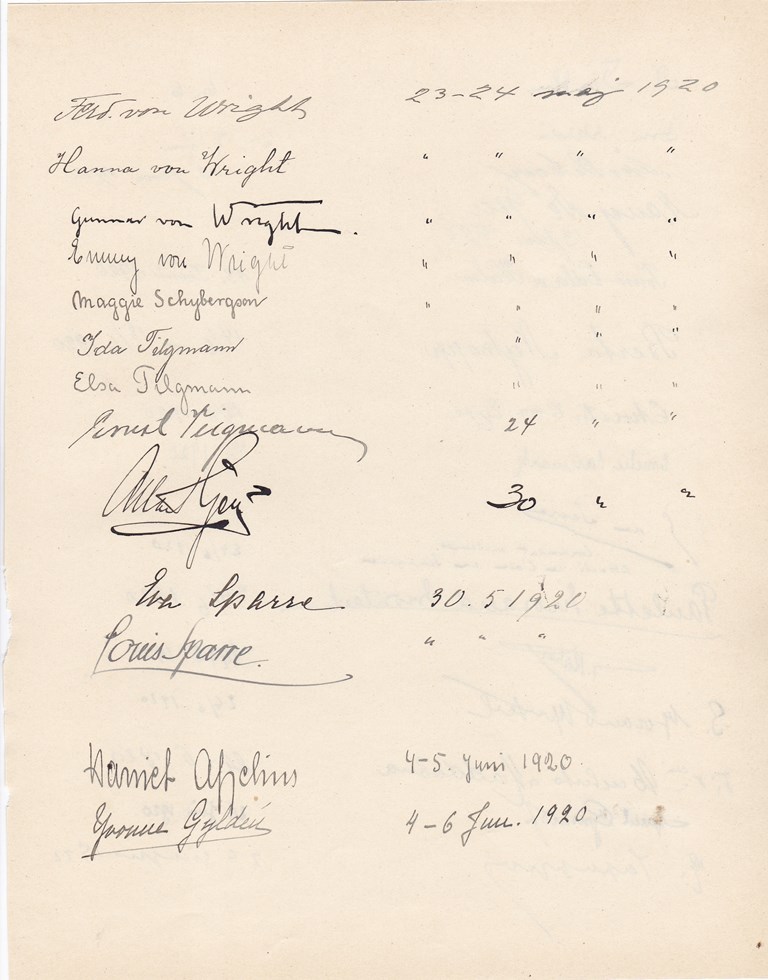 Ferd. von Wright 23-24 maj 1920
Hanna von Wright " " " "
Gunnar von Wright. " " " "
Emmy von Wright " " " "
Maggie Schybergson " " " "
Ida Tilgmann " " "
Elsa Tilgmann " " "
Ernst Tilgmann 24 " "
30 " "
Eva Sparre. 30. 5 1920
Louis Sparre. " " "
Harriet Afzelius 4-5. Juni 1920.
Yvonne Gyldén 4-6 Jun. 1920